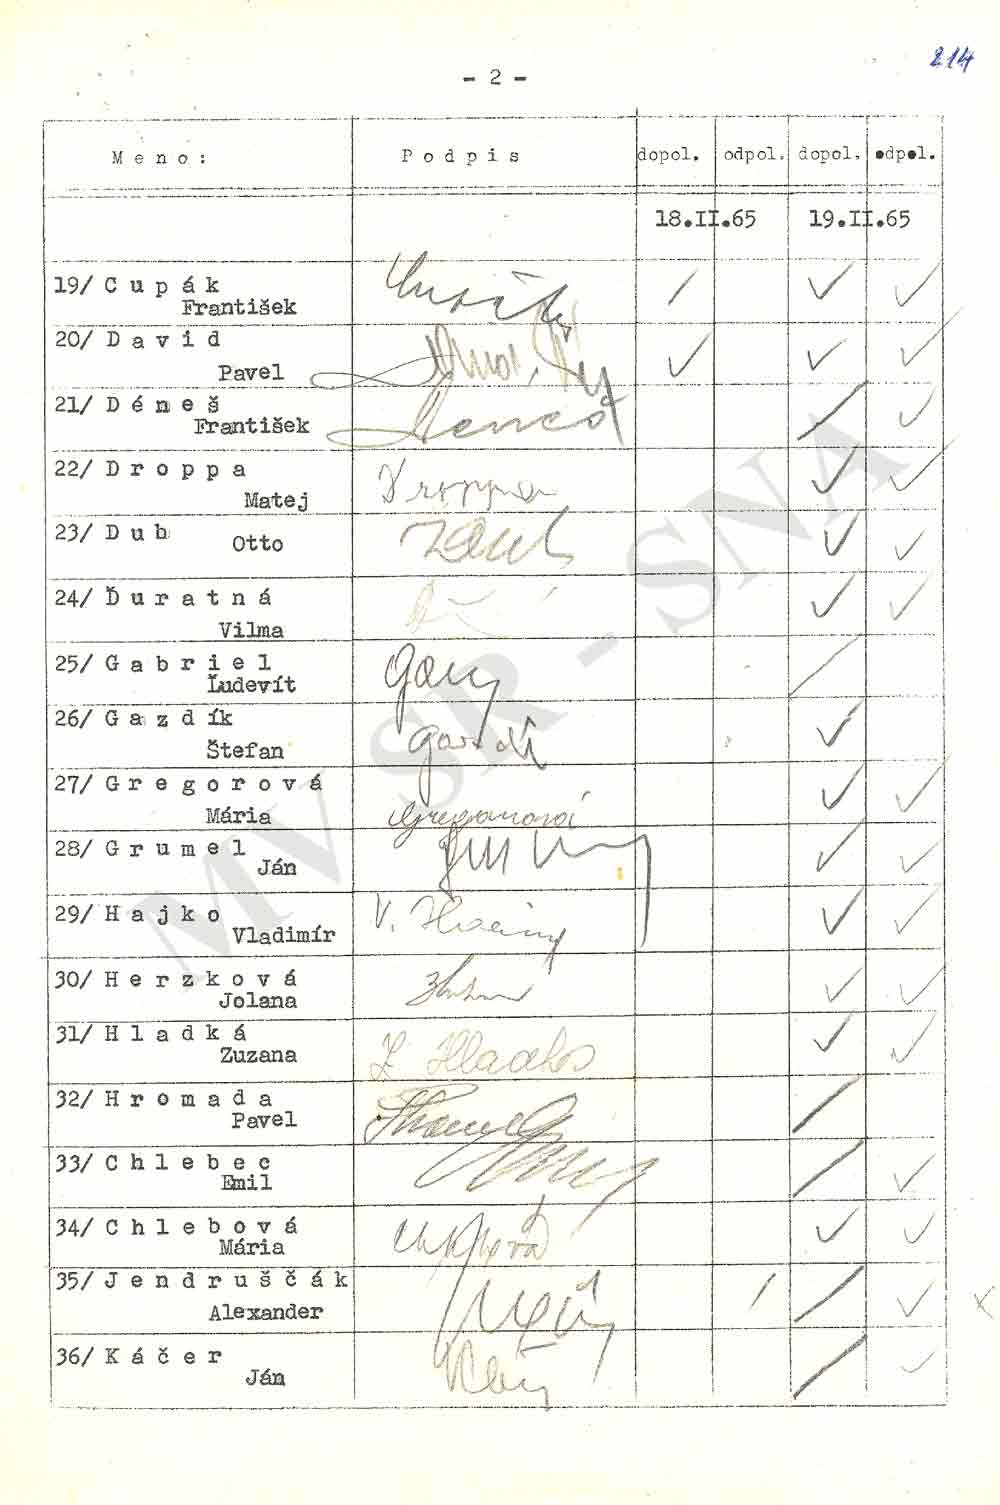 214
- 2 -
Meno: Podpis dopol. odpol. dopol. odpol.
18.II.65 19.II.65
19/ Cupák
František
20/ David
Pavel
21/ Déneš
František
22/ Droppa Droppa
Matej
23/ Dub
Otto
24/ Ďuratná
Vilma
25/ Gabriel
Ľudevít
26/ Gazdík
Štefan
27/ Gregorová
Mária Gregorová
28/ Grumel
Ján
29/ Hajko V.
Vladimír
30/ Herzková
Jolana
31/ Hladká
Zuzana
32/ Hromada
Pavel
33/ Chlebec
Emil
34/ Chlebová
Mária
35/ Jendruščák
Alexander
36/ Káčer
Ján
MV SR - SNA